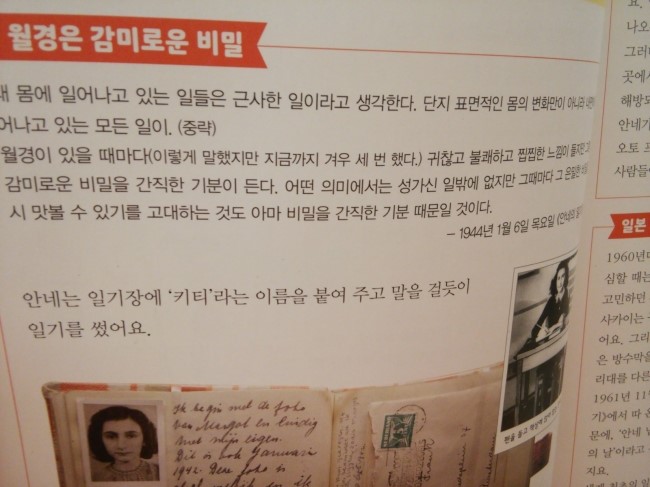 월경은 감미로운 비밀
몸에 일어나고 있는 일들은 근사한 일이라고 생각한다. 단지 표면적인 몸의 변화만이 아니라
어나고 있는 모든 일이. (중략)
월경이 있을 때마다(이렇게 말했지만 지금까지 겨우 세 번 했다.) 귀찮고 불쾌하고 찝찝한 느낌이 들지만
감미로운 비밀을 간직한 기분이 든다. 어떤 의미에서는 성가신 일밖에 없지만 그때마다 그 은밀한
시 맛볼 수 있기를 고대하는 것도 아마 비밀을 간직한 기분 때문일 것이다.
– 1944년 1월 6일 목요일
안네는 일기장에 ‘키티’라는 이름을 붙여 주고 말을 걸듯이
일기를 썼어요.
Ik begin met de foto
van Margot en eindig
met mijn eigen.
Dit is ook Januari
1942. Deze foto is
펜을 들고 책상에 앉아
나오
그러
곳에서
해방도
안네가
오토 프
사람들
일본
1960년대
심할 때는
고민하던
사카이는
어요. 그리
은 방수막을
리대를 다른
1961년 11월
기》에서 따 온
문에, ‘안네
의 날’이라고
지요.